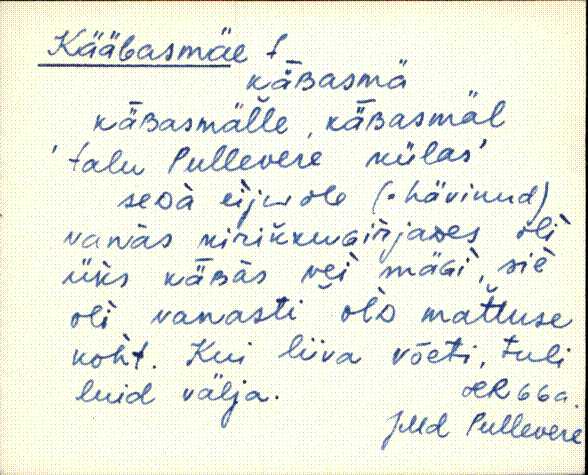 Kääbasmäe t
käʙasmä
käʙasmälle, käʙasmäl
'talu Pullevere külas'
seᴅà eiju olo (. hävinud)
vanàs kirikkuɢirjaᴅes oli
üks käʙàs vei mäɢi, siè
oli vanasti olo mattuse
koht. Kui liiva võeti, tuli
luid välja.
66a.
JMd Pullevere